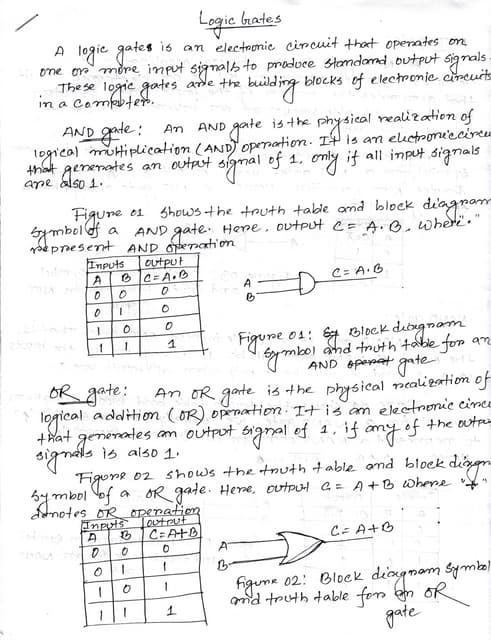 Logic Gates
A logic gates is an electronic circuit that operates on
one or more input signals to produce standard output signals.
These logic gates are the building blocks of electronic circuits
in a computer.
AND gate: An AND gate is the physical realization of
logical multiplication (AND) operation. It is an electronic circu
that generates an output signal of 1, only if all input signals
are also 1.
Figure 01 shows the truth table and block diagram
symbol of a AND gate. Here, output C = A.B, where "."
represent AND operation
Inputs output
A B C=A.B
0 0 0
0 1 0
1 0 0
1 1 1
A
B
C = A.B
Figure 01: Block diagram
symbol and truth table for an
AND gate
OR gate: An OR gate is the physical realization of
logical addition (OR) operation. It is an electronic circu
that generates an output signal of 1, if any of the outpu
signals is also 1.
Figure 02 shows the truth table and block diagram
symbol of a OR gate. Here, output C = A+B where "+"
denotes OR operation
Inputs output
A B C=A+B
0 0 0
0 1 1
1 0 1
1 1 1
A
B
C = A+B
Figure 02: Block diagram symbol
and truth table for an OR
gate